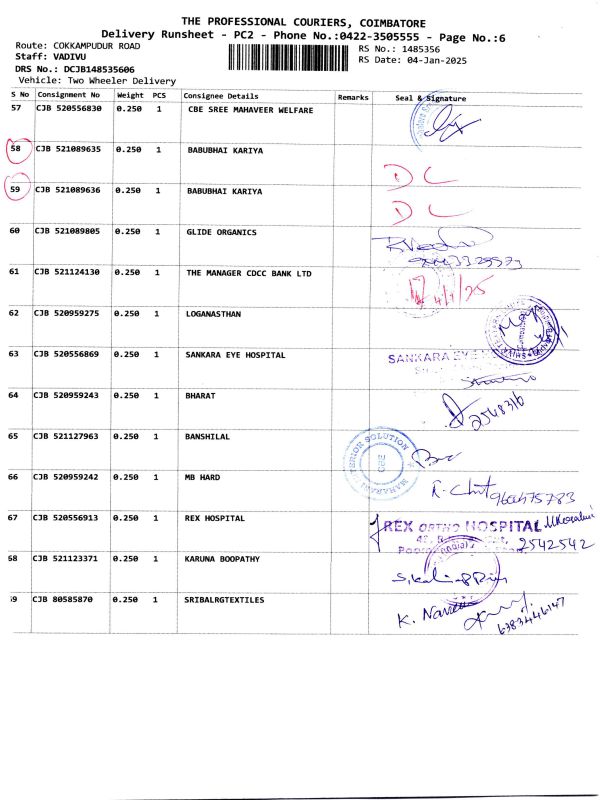 THE PROFESSIONAL COURIERS, COIMBATORE
Delivery Runsheet - PC2 - Phone No.:0422-3505555 - Page No.:6
Route: COKKAMPUDUR ROAD
RS No.: 1485356
Staff: VADIVU
RS Date: 04-Jan-2025
DRS No.: DCJB148535606
Vehicle: Two Wheeler Delivery
S No Consignment No Weight PCS Consignee Details Remarks Seal & Signature
57 CJB 520556830 0.250 1 CBE SREE MAHAVEER WELFARE
58 CJB 521089635 0.250 1 BABUBHAI KARIYA
DC
59 CJB 521089636 0.250 1 BABUBHAI KARIYA
DC
60 CJB 521089805 0.250 1 GLIDE ORGANICS
61 CJB 521124130 0.250 1 THE MANAGER CDCC BANK LTD
4/1/25
62 CJB 520959275 0.250 1 LOGANASTHAN
63 CJB 520556869 0.250 1 SANKARA EYE HOSPITAL
SANKARA EYE
64 CJB 520959243 0.250 1 BHARAT
2548316
65 CJB 521127963 0.250 1 BANSHILAL
MAHARANI INTERIOR SOLUTION
CBE
66 CJB 520959242 0.250 1 MB HARD
67 CJB 520556913 0.250 1 REX HOSPITAL
REX ORTHO HOSPITAL
2542542
68 CJB 521123371 0.250 1 KARUNA BOOPATHY
69 CJB 80585870 0.250 1 SRIBALRGTEXTILES
K. Naveen
6383446147